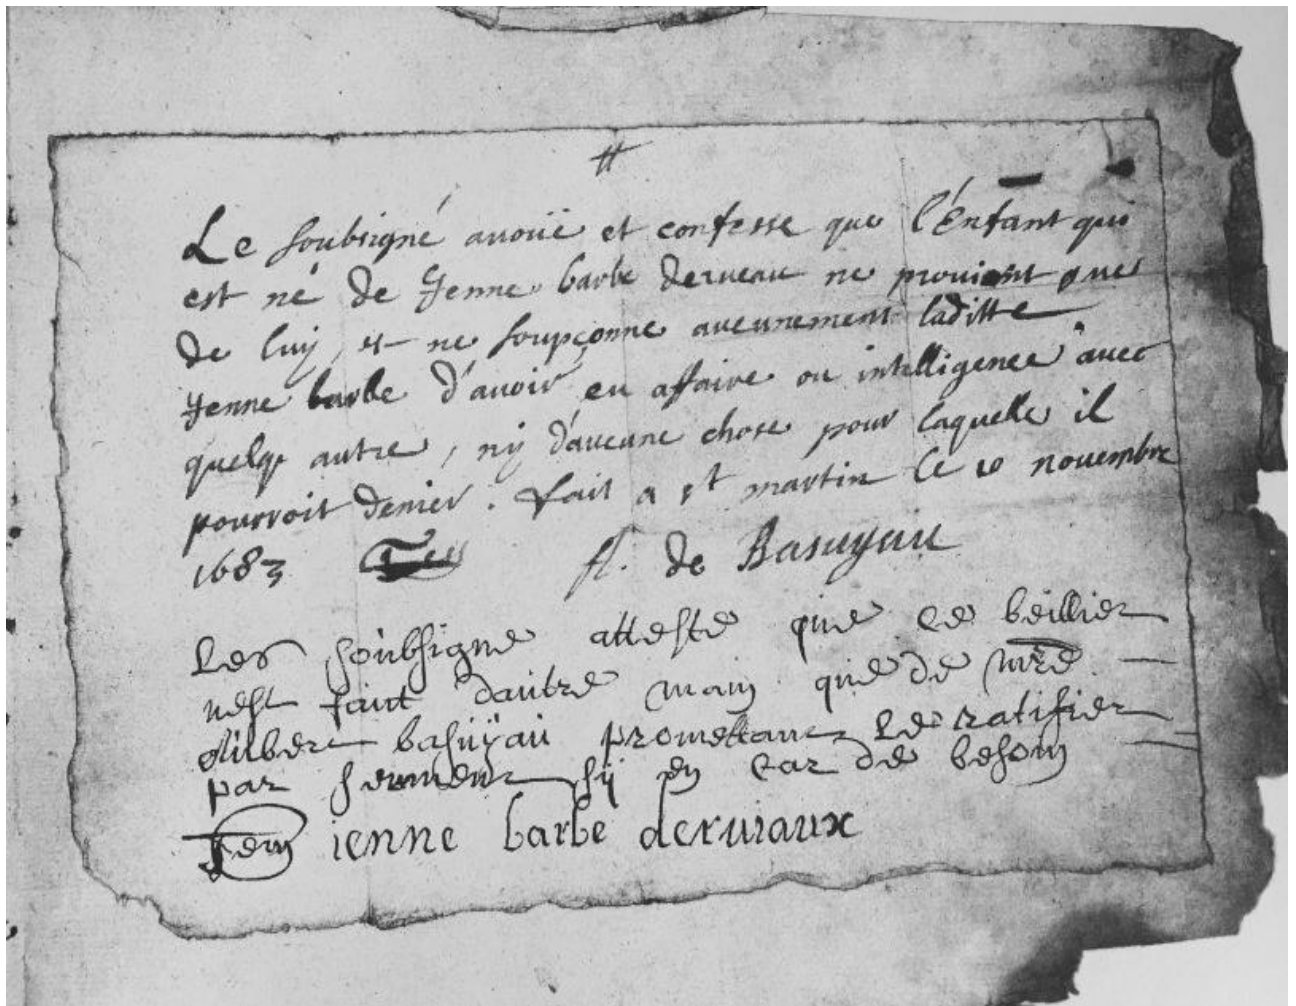 Le soubsigné avoüe et confesse que l'Enfant qui
est né de Jenne barbe derveau ne provient que
de luy, et ne soupçonne aucunement laditte
Jenne barbe d'avoir eu affaire ou intelligence avec
quelq autre, ny d'aucune chose pour laquelle il
pourroit denier. fait a st martin le 10 novembre
1683 de Basuyau
Les soubsigne atteste que ce beillier
nest faict dautre main que de mre
basuyau promettant le ratifier
par serment sy en cas de besoin
ienne barbe derviaux